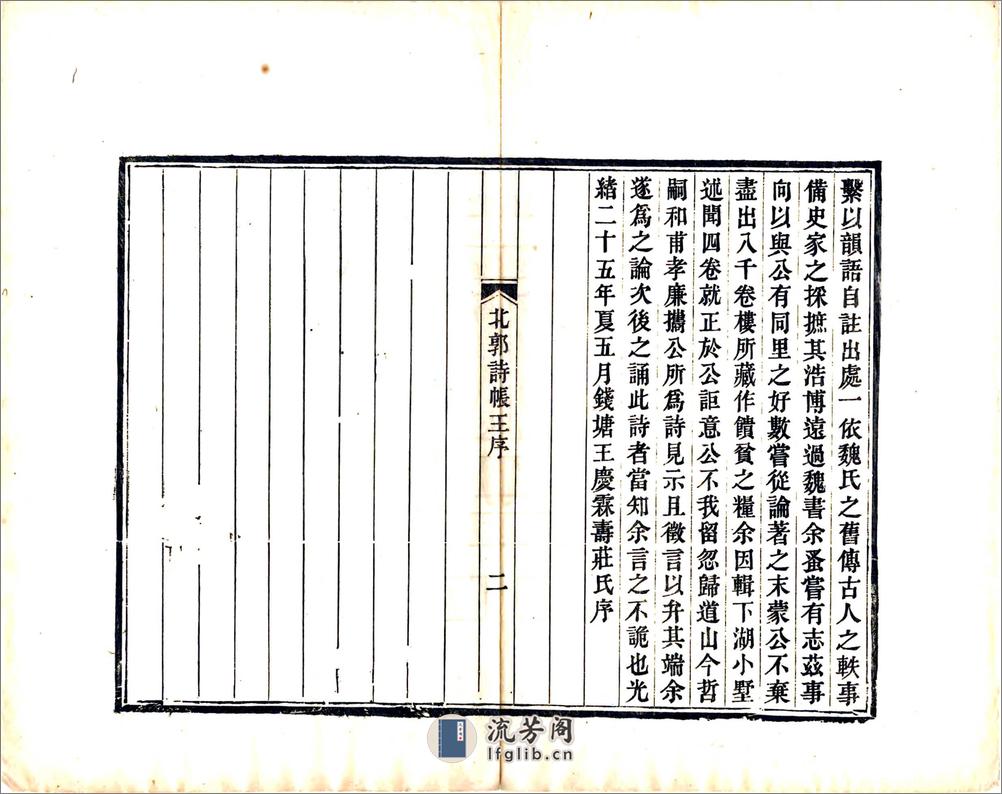 繫以韻語自註出處一依魏氏之舊傳古人之軼事
備史家之採摭其浩博遠過魏書余蚤嘗有志茲事
向以與公有同里之好數嘗從論著之末蒙公不棄
盡出八千卷樓所藏作饋貧之糧余因輯下湖小墅
述聞四卷就正於公詎意公不我留忽歸道山今哲
嗣和甫孝廉攜公所爲詩見示且徵言以弁其端余
遂爲之論次後之誦此詩者當知余言之不詭也光
緒二十五年夏五月錢塘王慶霖壽莊氏序
北郭詩帳王序
二
流芳阁
lfglib.cn